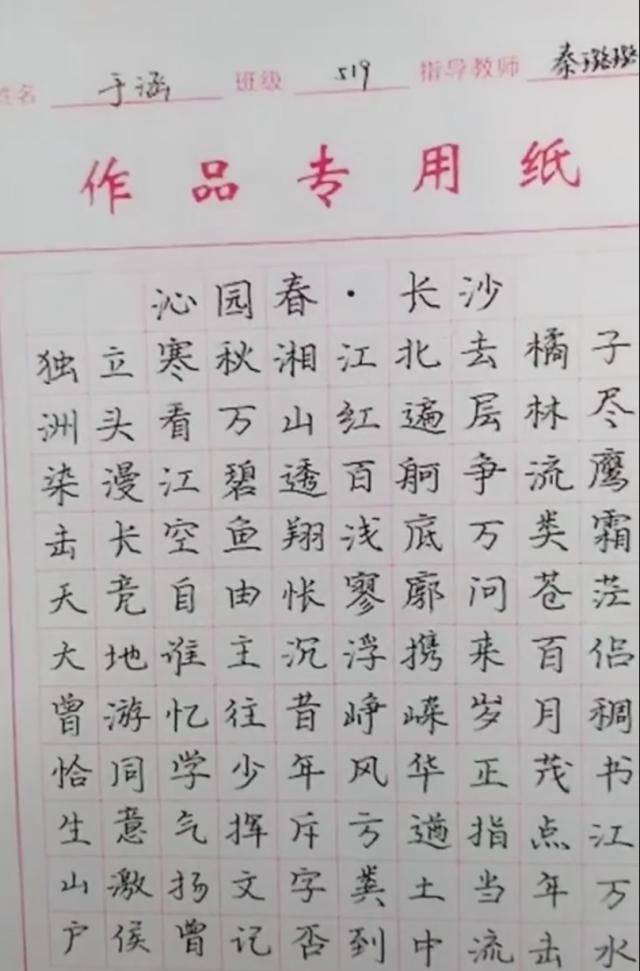 姓名 于涵 班级 519 指导教师 秦璐璐
作品专用纸
沁园春·长沙
独立寒秋湘江北去橘子
洲头看万山红遍层林尽
染漫江碧透百舸争流鹰
击长空鱼翔浅底万类霜
天竞自由怅寥廓问苍茫
大地谁主沉浮携来百侣
曾游忆往昔峥嵘岁月稠
恰同学少年风华正茂书
生意气挥斥方遒指点江
山激扬文字粪土当年万
户侯曾记否到中流击水